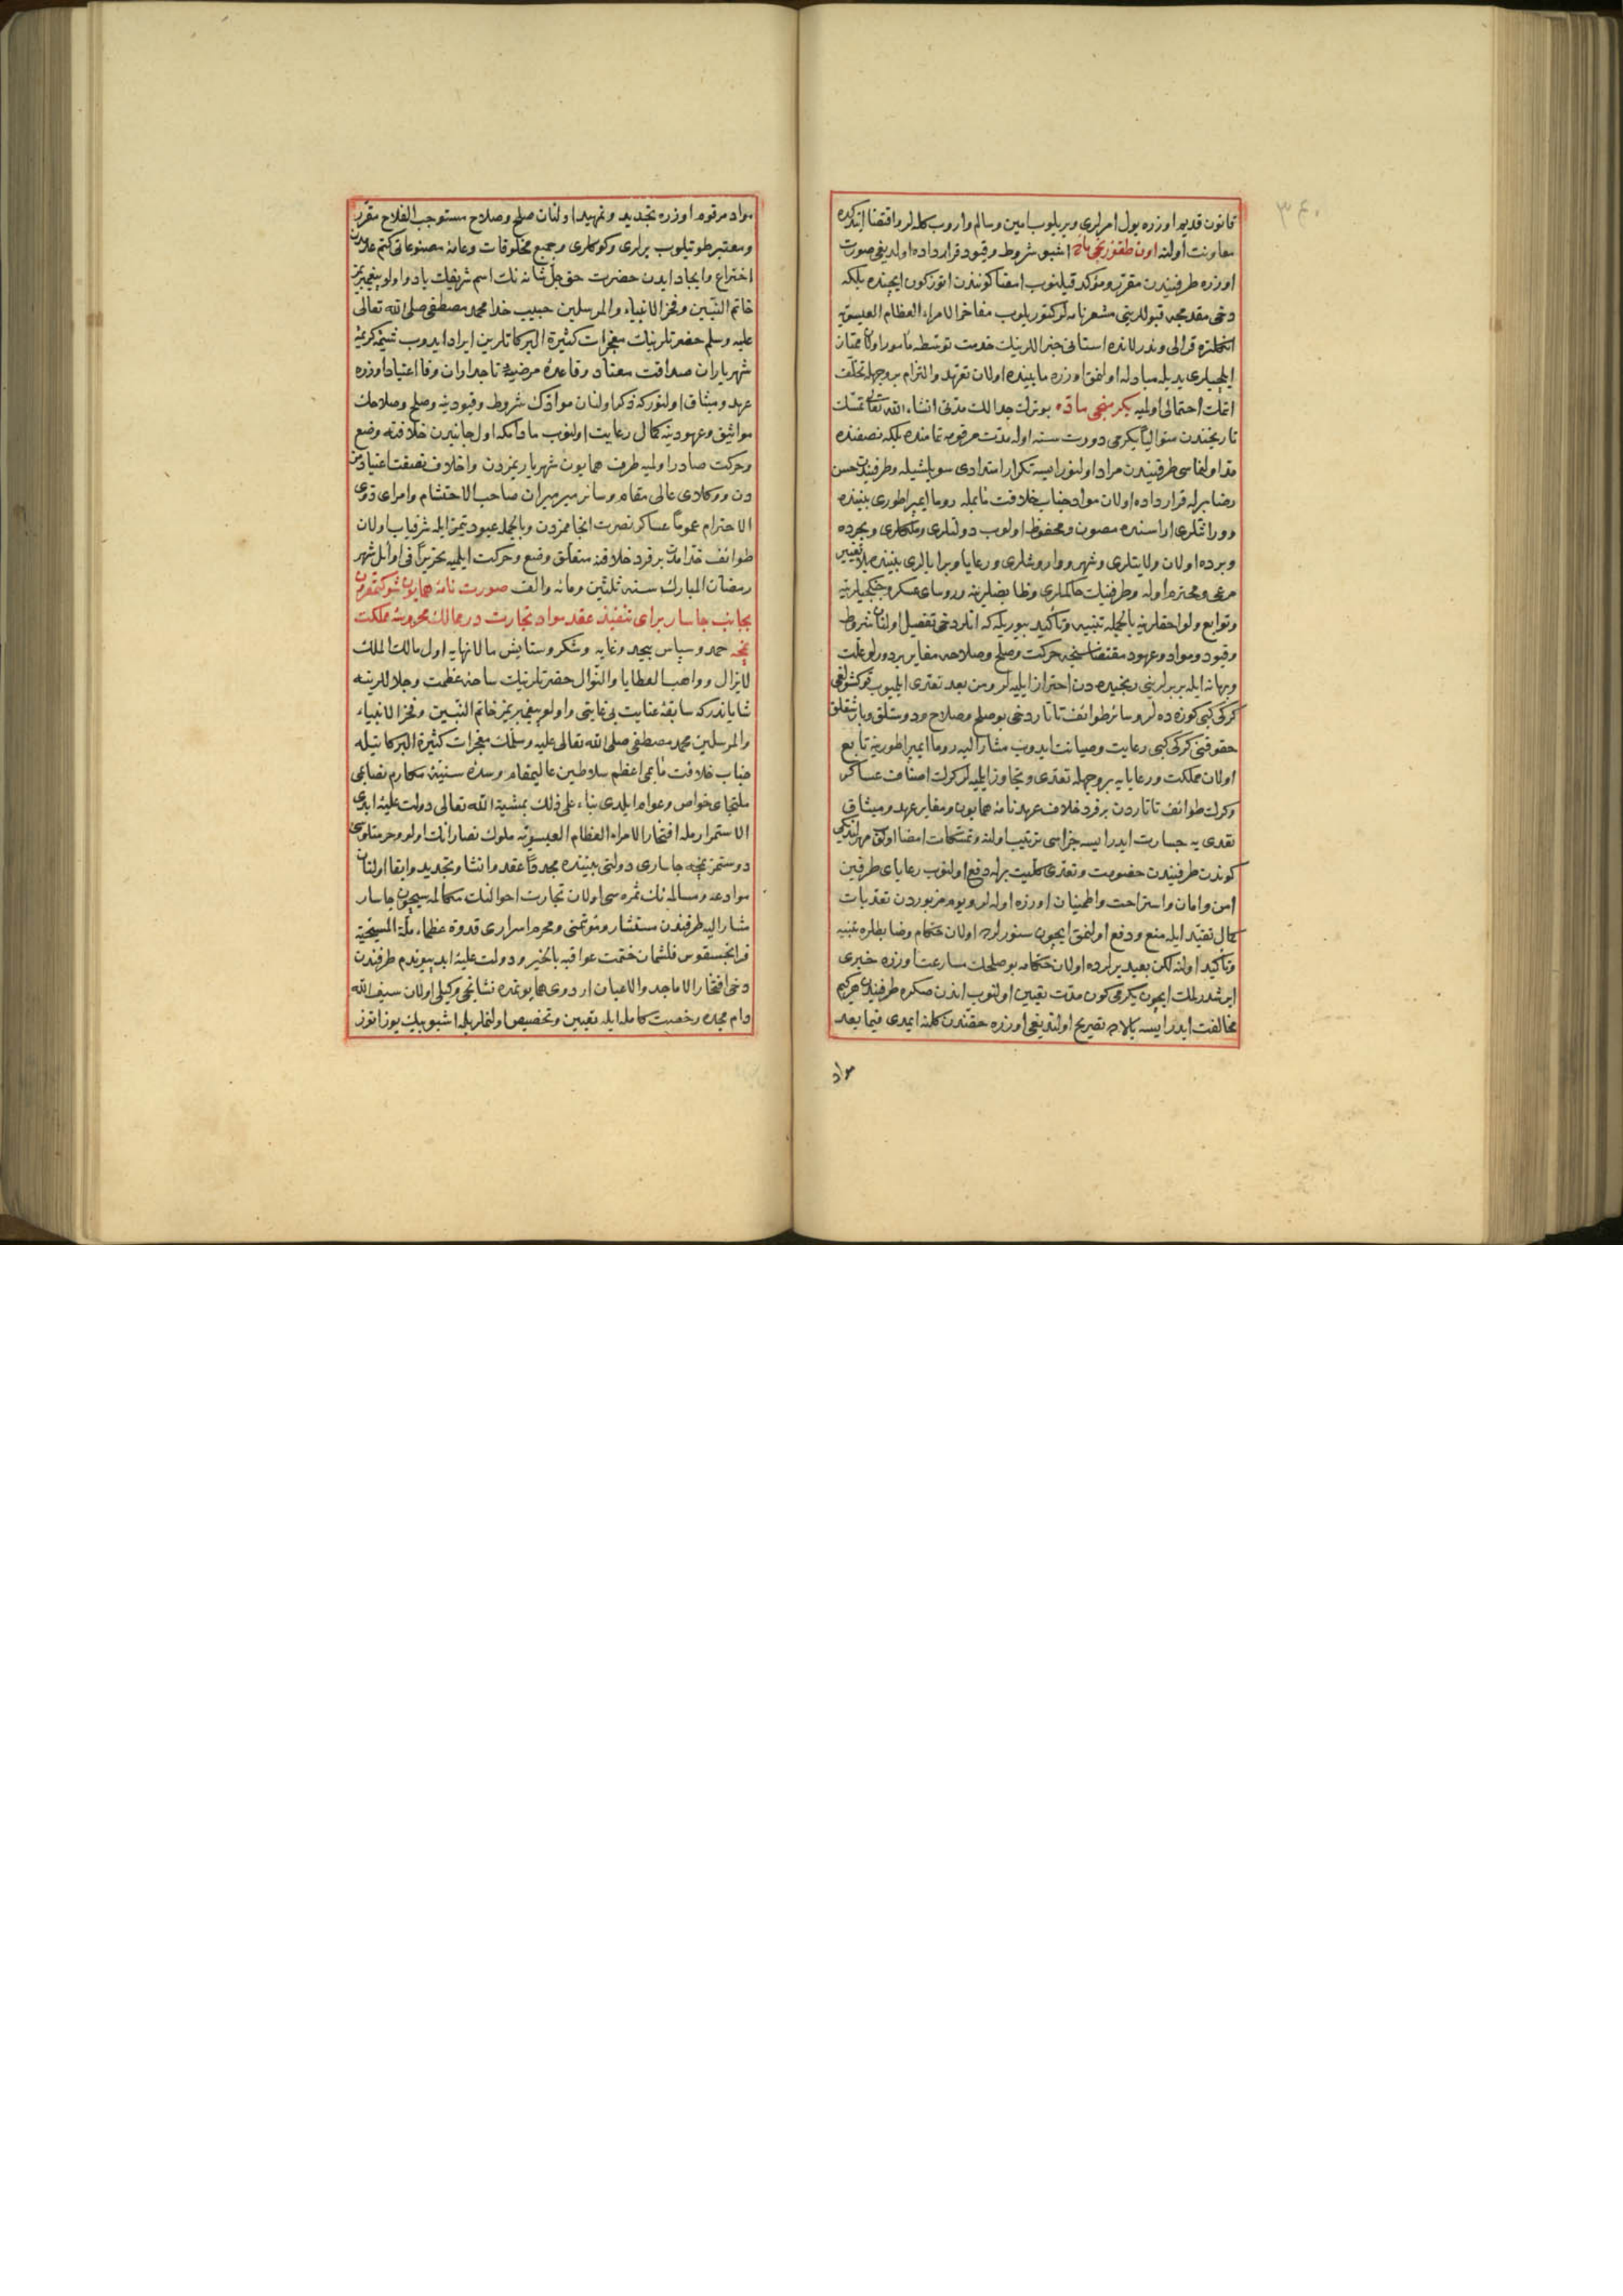 ٣٤٠
قانون قديم اوزره يول امرلرى ويريلوب امين وسالم واروب كله لر واقتضا ايتدكده
معاونت اولنه اون طقوزنجى ماده اشبو شروط وقيود قرارداده اولديغى صورت
اوزره طرفيندن مقرر ومؤكد قيلنوب امضا كونندن اتوز كون ايچنده بلكه
دخى مقدمجه قبوللرينى مشعر نامه لر كتوريلوب مفاخر الامراء العظام العيسويه
انكلتره قرالى وندرلانده استاتى جنراللرينك خدمت توسطه مأمور اولان
ايلچيلرى يديله مبادله اولنمق اوزره مابينده اولان تعهد والتزام بر وجهله تخلف
اتمك احتمالى اولميه يكرمنجى ماده بو ترك جدالك مدتى انشاء الله تعالى تمسك
تاريخندن متوالياً يكرمى دورت سنه اوله مدت مرقومه تمامنده بلكه نصفنده
مد اولنماسى طرفيندن مراد اولنور ايسه تكرار استردادى سويلشيله وطرفينك حسن
رضالريله قرارداده اولان مواد جناب خلافتمآبمله روما ايمپراطورى بيننده
وورثتلرى اراسنده مصون ومحفوظ اولوب دولتلرى وملكلرى وبحرده
وبرده اولان ولايتلرى وشهر وواروشلرى ورعايا وبرايالرى بيننده بلا تغيير
مرعى ومحترم اوله وطرفينك حاكملرى وضابطلرينه ورؤساى عسكر وجنكجيلرينه
وتوابع ولواحقلرينه بالجمله تنبيه وتأكيد بيوريله كه انلر دخى تفصيل اولنان شروط
وقيود ومواد وعهود مقتضاسنجه حركت وصلح وصلاحه مغاير بر دورلو علت
وبهانه ايله بربرلرينى رنجيده دن احتراز ايليه لر ومن بعد تعدى ايلميوب قوكشولغى
كركى كبى كوزه ده لر وسائر طوائف تاتار دخى بو صلح وصلاح ودوستلق وبارشقلق
حقوقنى كركى كبى رعايت وصيانت ايدوب مشار اليه روما ايمپراطورينه تابع
اولان مملكت ورعايايه بر وجهله تعدى وتجاوز ايلميه لر كرك اصناف عساكر
وكرك طوائف تاتاردن بر فرد خلاف عهدنامه همايون ومغاير عهد وميثاق
تعدى يه جسارت ايدر ايسه جزاسى ترتيب اولنه وتمسكات امضا اولنوب مهرلندكى
كوندن طرفيندن خصومت وتعدى كليت برله دفع اولنوب رعاياى طرفين
امن وامان واستراحت واطمينان اوزره اوله لر ويوم مزبوردن تعديات
كمال تقيد ايله منع ودفع اولنمق ايچون سنورلرده اولان حكام وضابطلره تنبيه
وتأكيد اولنه لكن بعيد يرلرده اولان حكامه بو صلحك مسارعت اوزره خبرى
ايرشدرلمك ايچون يكرمى كون مدت تعيين اولنوب اندن صكره طرفيندن هر كيم
مخالفت ايدر ايسه بالاده تصريح اولنديغى اوزره حقندن كلنه ايمدى فيما بعد
مواد
مواد مرقوم اوزره تجديد وتمهيد اولنان صلح وصلاح مستوجب الفلاح مقرر
ومعتبر طوتيلوب يرلرى وكوكلرى وجميع مخلوقات وعامه مصنوعاتى كتم عدمدن
اختراع وايجاد ايدن حضرت حق جل شانه نك اسم شريفلك ياد واولو پيغمبريمز
خاتم النبيين وفخر الانبياء والمرسلين حبيب خدا محمد مصطفى صلى الله تعالى
عليه وسلم حضرتلرينك معجزات كثيرة البركاتلرين ايراد ايدوب شيمه كريمه
شهرياران صداقت معتاد وقاعده مرضيه تاجداران وفا اعتياد اوزره
عهد وميثاق اولنور كه ذكر اولنان موادك شروط وقيودينه وصلح وصلاحك
مواثيق وعهودينه كمال رعايت اولنوب مادامكه اول جانبدن خلافنه وضع
وحركت صادر اولميه طرف همايون شهرياريمزدن واخلاف نصفت اعتيادمزدن
دن ووكلاى عالى مقام وسائر ميرميران صاحب الاحتشام وامراى ذوى
الاحترام عموماً عساكر نصرت انجاممزدن وبالجمله عبوديتمز ايله شرفياب اولان
طوائف خدامدن بر فرد خلافنه متعلق وضع وحركت ايلميه تحريراً فى اوائل شهر
رمضان المبارك سنه ثلثين ومائه والف صورت نامه همايون شوكتمقرون
بجانب چاسار براى تنفيذ عقد مواد تجارت در ممالك محروسه مملكت
نمچه حمد وسپاس بيحد وغايه وشكر وستايش مالانهايه اول مالك الملك
لايزال وواهب العطايا والنوال حضرتلرينك ساحه عظمت وجلاللرينه
شاياندر كه سابقه عنايت بى غايتى واولو پيغمبريمز خاتم النبيين وفخر الانبياء
والمرسلين محمد مصطفى صلى الله تعالى عليه وسلمك معجزات كثيرة البركاتيله
جناب خلافتمآبمى اعظم سلاطين عاليمقام وسده سنيه مكارم نصابمى
ملتجاى خواص وعوام ايلدى بناء على ذلك بمشية الله تعالى دولت عليه ابدى
الاستمراريمله افتخار الامراء العظام العيسويه ملوك نصارانك اولو وحرمتلوسى
دوستمز نمچه چاسارى دولتى بيننده مجدداً عقد وانشا وتجديد وابقا اولنان
موادعه ومسالمه نك ثمره سى اولان تجارت احوالنك مكالمه سيچون چاسار
مشار اليه طرفندن مستشار ومؤتمنى ومحرم اسرارى قدوة عظماء ملة المسيحية
فرانچسقوس فلشمان ختمت عواقبه بالخير ودولت عليه ابد پيوندم طرفندن
دخى افتخار الاماجد والاعيان اردوى همايونمده نشانجى وكيلى اولان سيف الله
دام مجده رخصت كامله ايله تعيين وتخصيص اولنملريله اشبو بيك يوز اتوز